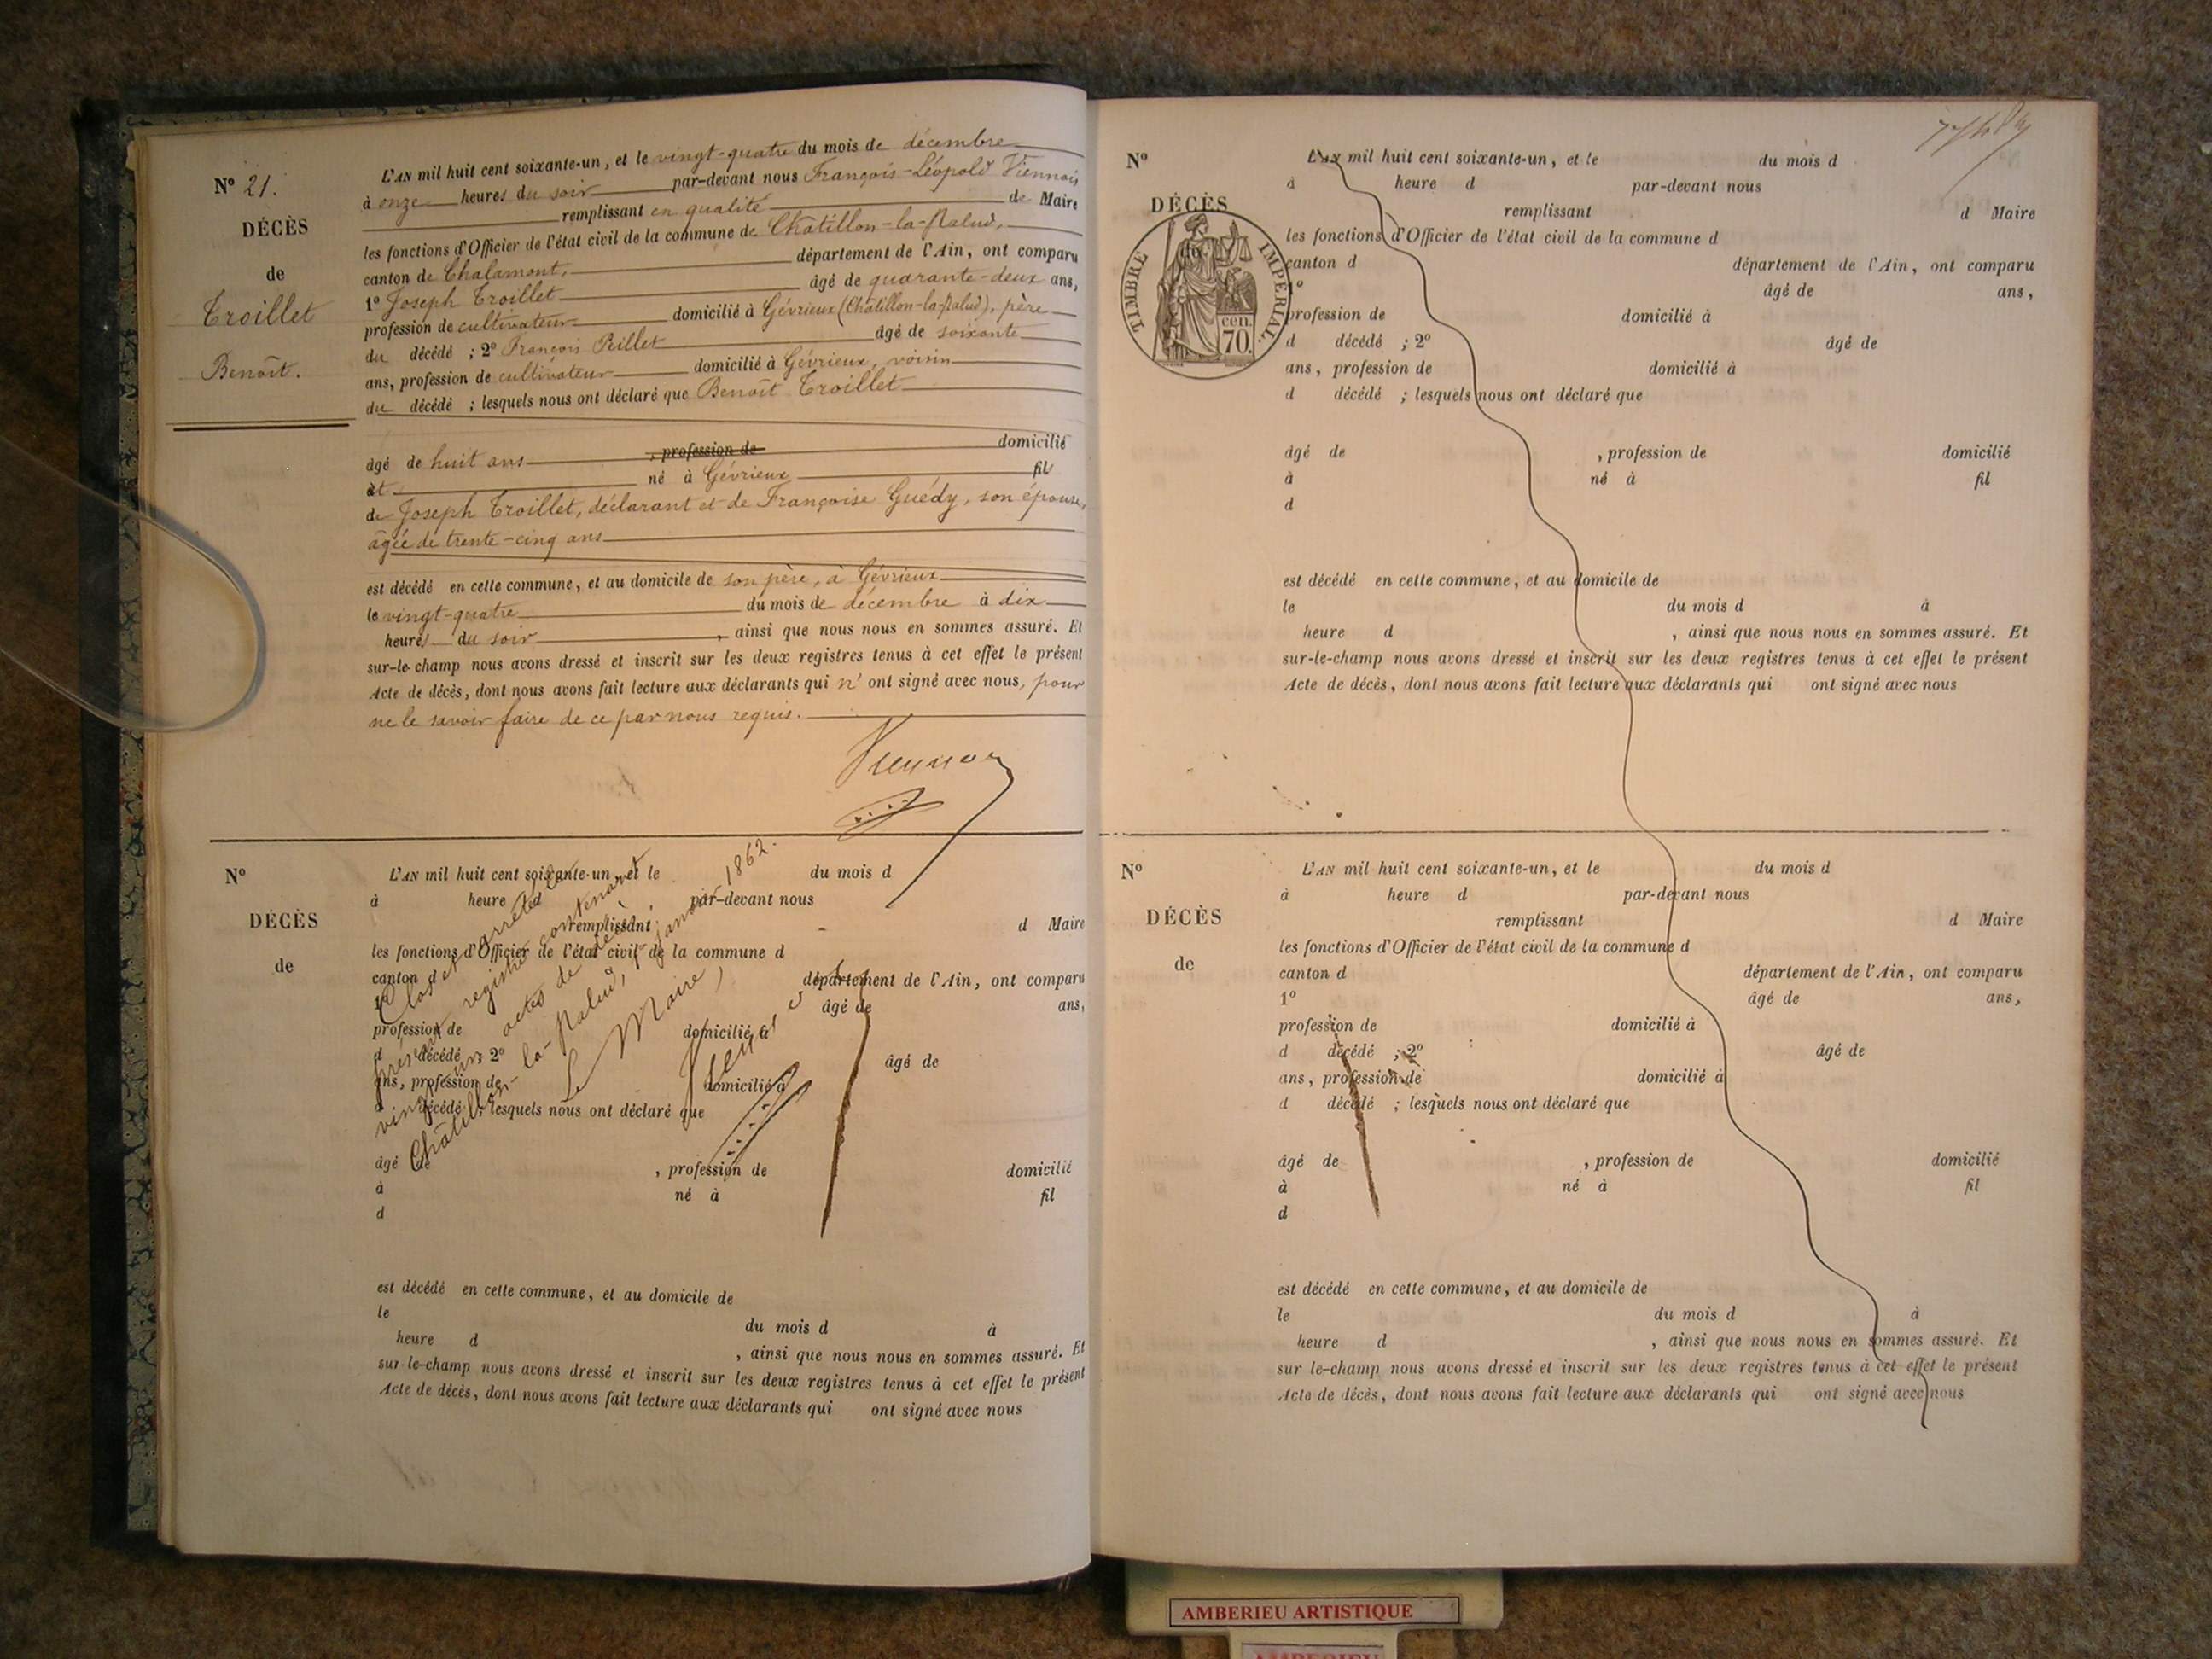 N° 21.
DÉCÈS
de
Troillet
Benoît.
L'AN mil huit cent soixante-un, et le vingt-quatre du mois de décembre
à onze heures du soir par-devant nous François-Léopold Viennois
remplissant en qualité de Maire
les fonctions d'Officier de l'état civil de la commune de Châtillon-la-Palud,
canton de Chalamont, département de l'Ain, ont comparu
1° Joseph Troillet âgé de quarante-deux ans,
profession de cultivateur domicilié à Gévrieux (Châtillon-la-Palud), père
du décédé ; 2° François Peillet âgé de soixante
ans, profession de cultivateur domicilié à Gévrieux, voisin
du décédé ; lesquels nous ont déclaré que Benoît Troillet
âgé de huit ans , profession de domicilié
et né à Gévrieux fils
de Joseph Troillet, déclarant et de Françoise Guédy, son épouse,
âgée de trente-cinq ans
est décédé en cette commune, et au domicile de son père, à Gévrieux
le vingt-quatre du mois de décembre à dix
heures du soir , ainsi que nous nous en sommes assuré. Et
sur-le-champ nous avons dressé et inscrit sur les deux registres tenus à cet effet le présent
Acte de décès, dont nous avons fait lecture aux déclarants qui n' ont signé avec nous, pour
ne le savoir faire de ce par nous requis.
Viennois
N°
DÉCÈS
de
L'AN mil huit cent soixante-un, et le du mois d
à heure d par-devant nous
remplissant d Maire
les fonctions d'Officier de l'état civil de la commune d
canton d département de l'Ain, ont comparu
1° âgé de ans,
profession de domicilié à
d décédé ; 2° âgé de
ans, profession de domicilié à
d décédé ; lesquels nous ont déclaré que
âgé de , profession de domicilié
à né à fil
d
est décédé en cette commune, et au domicile de
le du mois d à
heure d , ainsi que nous nous en sommes assuré. Et
sur-le-champ nous avons dressé et inscrit sur les deux registres tenus à cet effet le présent
Acte de décès, dont nous avons fait lecture aux déclarants qui ont signé avec nous
Clos et arrêté le
présent registre contenant
vingt-un actes de décès.
Châtillon-la-Palud, 1er janvier 1862.
Le Maire,
Viennois
N°
DÉCÈS
TIMBRE IMPÉRIAL.
cen.
70.
L'AN mil huit cent soixante-un, et le du mois d
à heure d par-devant nous
remplissant d Maire
les fonctions d'Officier de l'état civil de la commune d
canton d département de l'Ain, ont comparu
1° âgé de ans,
profession de domicilié à
d décédé ; 2° âgé de
ans, profession de domicilié à
d décédé ; lesquels nous ont déclaré que
âgé de , profession de domicilié
à né à fil
d
est décédé en cette commune, et au domicile de
le du mois d à
heure d , ainsi que nous nous en sommes assuré. Et
sur-le-champ nous avons dressé et inscrit sur les deux registres tenus à cet effet le présent
Acte de décès, dont nous avons fait lecture aux déclarants qui ont signé avec nous
N°
DÉCÈS
de
L'AN mil huit cent soixante-un, et le du mois d
à heure d par-devant nous
remplissant d Maire
les fonctions d'Officier de l'état civil de la commune d
canton d département de l'Ain, ont comparu
1° âgé de ans,
profession de domicilié à
d décédé ; 2° âgé de
ans, profession de domicilié à
d décédé ; lesquels nous ont déclaré que
âgé de , profession de domicilié
à né à fil
d
est décédé en cette commune, et au domicile de
le du mois d à
heure d , ainsi que nous nous en sommes assuré. Et
sur le-champ nous avons dressé et inscrit sur les deux registres tenus à cet effet le présent
Acte de décès, dont nous avons fait lecture aux déclarants qui ont signé avec nous
AMBERIEU ARTISTIQUE
AMBERIEU